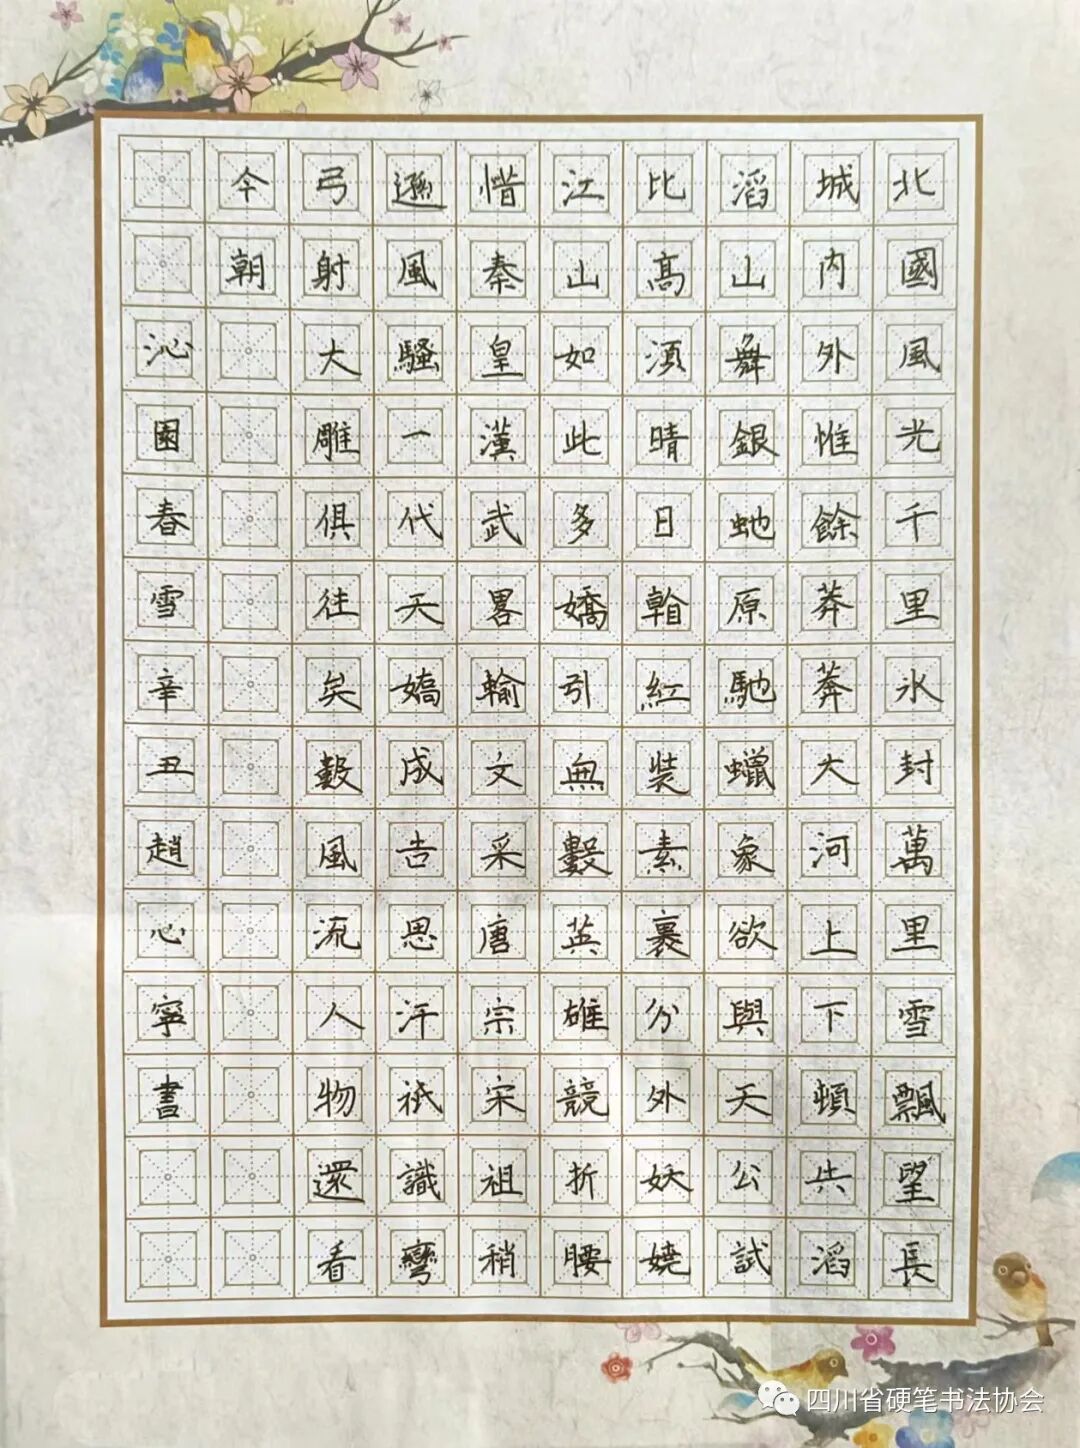 北國風光千里氷封萬里雪飄望長
城内外惟餘莽莽大河上下頓失滔
滔山舞銀蛇原馳蠟象欲與天公試
比高須晴日看紅裝素裹分外妖嬈
江山如此多嬌引無數英雄競折腰
惜秦皇漢武畧輸文采唐宗宋祖稍
遜風騷一代天嬌成吉思汗祇識彎
弓射大雕俱往矣數風流人物還看
今朝
沁園春雪辛丑趙心寧書
四川省硬笔书法协会